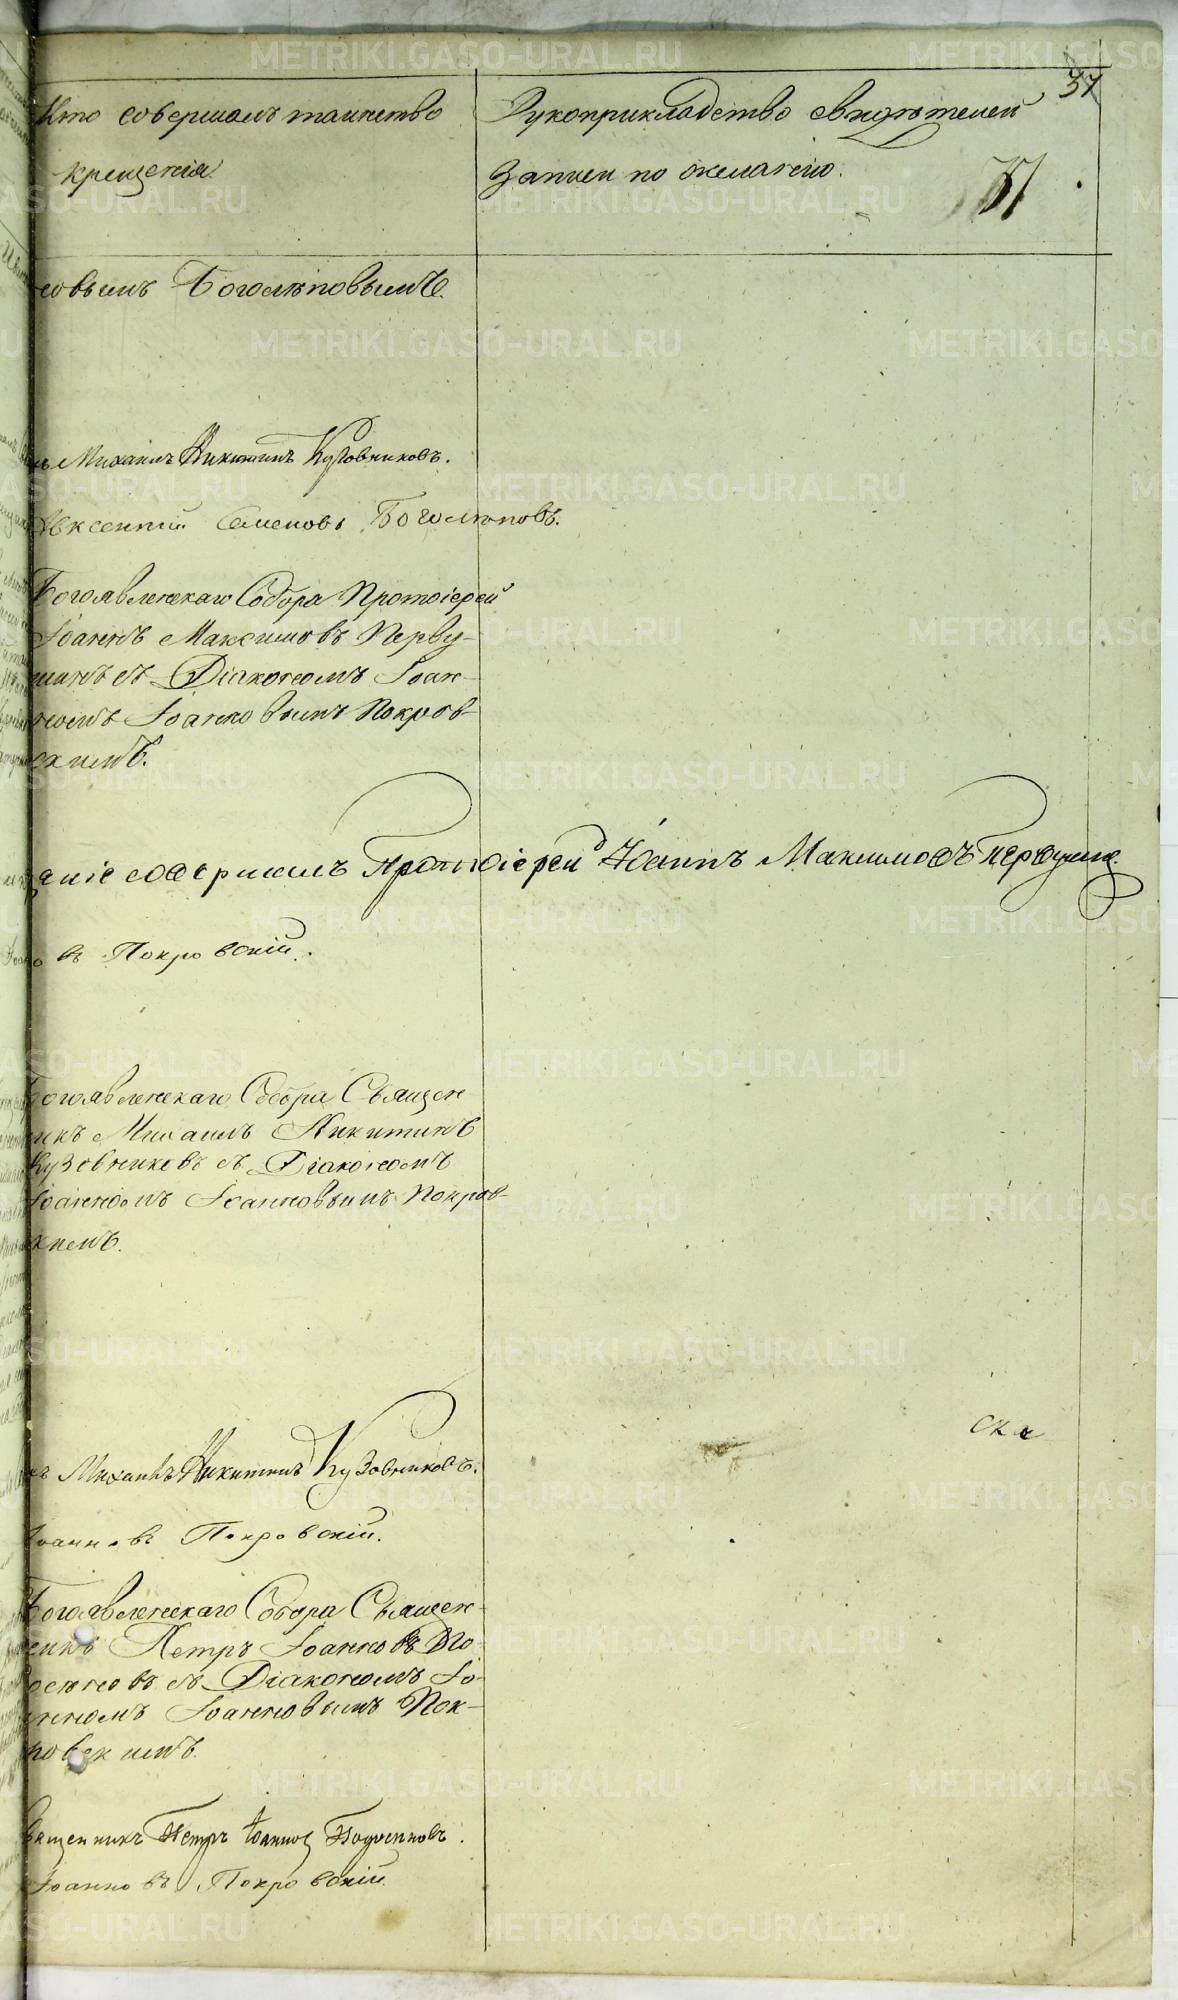 37
Кто совершалъ таинство
крещенія.
Рукоприкладство свидѣтелей
записи по желанію.
37
новымъ Боголѣповымъ.
Михаилъ Никитинъ Кузовниковъ.
Авксентій Семеновъ Боголѣповъ.
Богоявленскаго Собора Протоіерей
Іоаннъ Максимовъ Перву-
шинъ съ Діакономъ Іоан-
номъ Іоанновымъ Покров-
скимъ.
щеніе совершилъ Протоіерей Іоаннъ Максимовъ Первушинъ
въ Покровскій.
Богоявленскаго Собора Священ
никъ Михаилъ Никитинъ
Кузовниковъ съ Діакономъ
Іоанномъ Іоанновымъ Покров-
скимъ.
Михаилъ Никитинъ Кузовниковъ.
Іоанновъ Покровскій.
Богоявленскаго Собора Священ-
никъ Петръ Іоанновъ
съ Діакономъ Іо-
анномъ Іоанновымъ Пок-
ровскимъ.
Священникъ Петръ Іоанновъ
Іоанновъ Покровскій.
METRIKI.GASO-URAL.RU